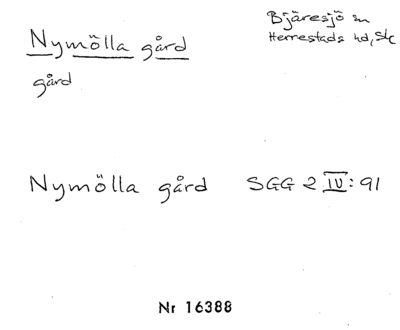 Nymölla gård
Bjäresjö sn
Herrestads hd, Sk
gård
Nymölla gård SGG 2 IV: 91
Nr 16388